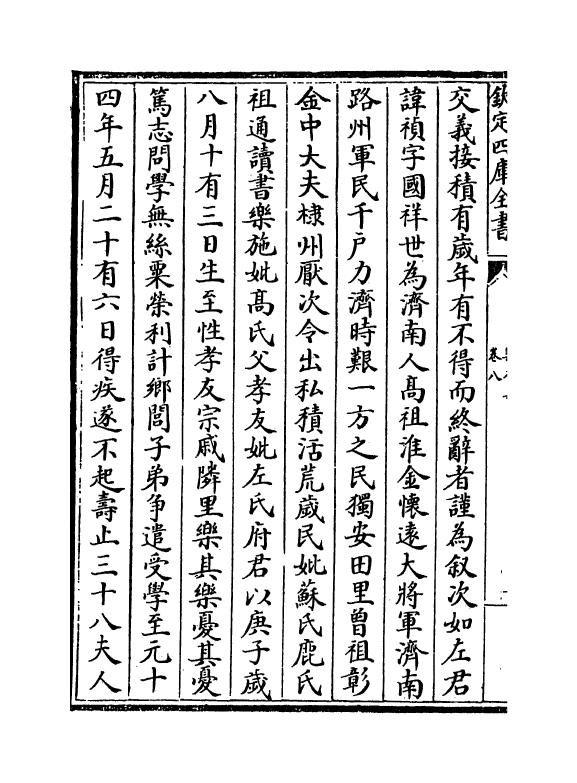 欽定四庫全書
卷八
交義接積有歲年有不得而終辭者謹為叙次如左君
諱禎字國祥世為濟南人髙祖淮金懷逺大將軍濟南
路州軍民千戶力濟時艱一方之民獨安田里曽祖彰
金中大夫棣州厭次令出私積活荒歲民妣蘇氏鹿氏
祖通讀書樂施妣髙氏父孝友妣左氏府君以庚子歲
八月十有三日生至性孝友宗戚隣里樂其樂憂其憂
篤志問學無絲粟榮利計鄉閭子弟争遣受學至元十
四年五月二十有六日得疾遂不起壽止三十八夫人